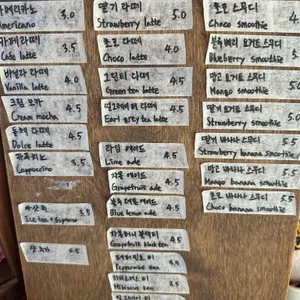 아메리카노 3.0
Americano
카페라떼 3.5
Cafe latte
바닐라 라떼 4.0
Vanilla latte
크림 모카 4.5
Cream mocha
돌체 라떼 4.5
Dolce latte
카푸치노
Cappuccino
3.5
Ice tea + Espresso
딸기 라떼 5.0
Strawberry latte
초코 라떼 4.0
Choco latte
그린티 라떼 4.5
Green tea latte
얼그레이 라떼 4.5
Earl grey tea latte
라임 에이드 4.5
Lime ade
자몽 에이드 4.5
Grapefruit ade
블루 레몬 에이드 4.5
Blue lemon ade
자몽허니 블랙티 4.5
Grapefruit black tea
페퍼민트 티 4.5
Peppermint tea
히비스커스 티 4.5
Hibiscus tea
초코 스무디
Choco smoothie
블루베리 요거트 스무디
Blueberry smoothie
망고 요거트 스무디 5.
Mango smoothie
딸기 스무디 5.
Strawberry smoothie
딸기 바나나 스무디 5.5
Strawberry banana smoothie
망고 바나나 스무디 5.5
Mango banana smoothie
초코 바나나 스무디 5.5
Choco banana smoothie